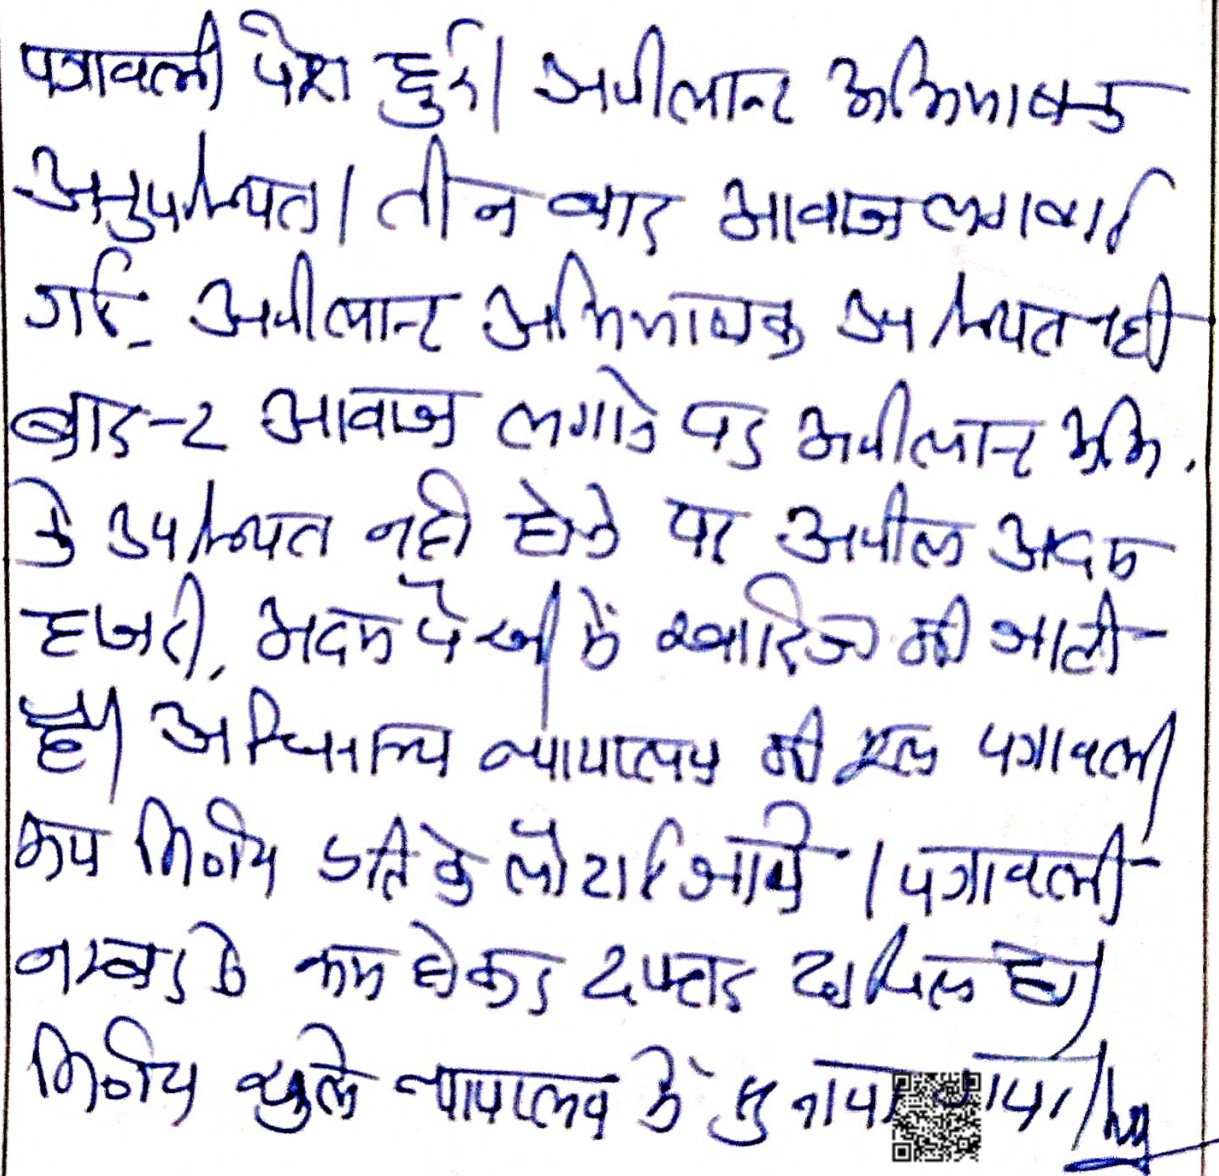 पत्रावली पेश हुई। अपीलान्ट अभिभाषक
अनुपस्थित। तीन बार आवाज लगवाई
गई अपीलान्ट अभिभाषक उपस्थित नही
बार-2 आवाज लगाने पर अपीलान्ट अभि.
के उपस्थित नही होने पर अपील अदम
हाजरी, अदम पैरवी में खारिज की जाती
है। अधिनस्थ न्यायालय की मूल पत्रावली
मय निर्णय प्रति के लौटाई जावे। पत्रावली
नम्बर से कम होकर दफ्तर दाखिल हो।
निर्णय खुले न्यायालय में सुनाया गया।